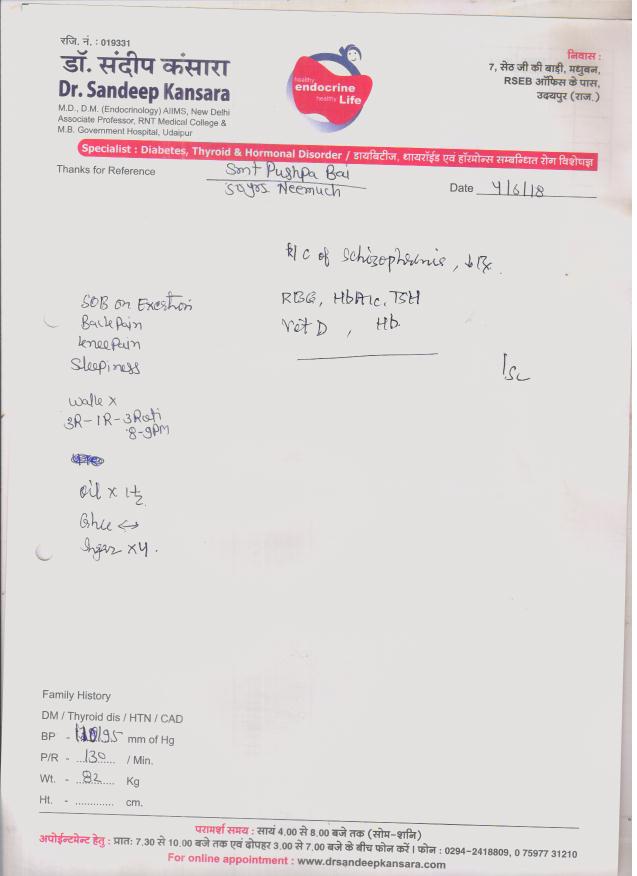 रजि. नं. : 019331
डॉ. संदीप कंसारा
Dr. Sandeep Kansara
M.D., D.M. (Endocrinology) AIIMS, New Delhi
Associate Professor, RNT Medical College &
M.B. Government Hospital, Udaipur
healthy
endocrine
healthy Life
निवास :
7, सेठ जी की बाड़ी, मधुबन,
RSEB ऑफिस के पास,
उदयपुर (राज.)
Specialist : Diabetes, Thyroid & Hormonal Disorder / डायबिटीज, थायरॉईड एवं हॉरमोन्स सम्बन्धित रोग विशेषज्ञ
Thanks for Reference Smt Pushpa Bai
50yrs Neemuch
Date 4/6/18
K/C of Schizophrenia, ↓ Rx.
SOB on Exertion
Back Pain
kneePain
Sleepiness
RBG, HbA1c, TSH
Vit D , Hb.
walk x
3R-1R-3Roti
8-9PM
oil x 1½
Ghee ↔
Sugar x4.
Family History
DM / Thyroid dis / HTN / CAD
BP - /95 mm of Hg
P/R - 130 / Min.
Wt. - 82 Kg
Ht. - ............. cm.
परामर्श समय : सायं 4.00 से 8.00 बजे तक (सोम-शनि)
अपोईन्टमेन्ट हेतु : प्रातः 7.30 से 10.00 बजे तक एवं दोपहर 3.00 से 7.00 बजे के बीच फोन करें । फोन : 0294-2418809, 0 75977 31210
For online appointment : www.drsandeepkansara.com